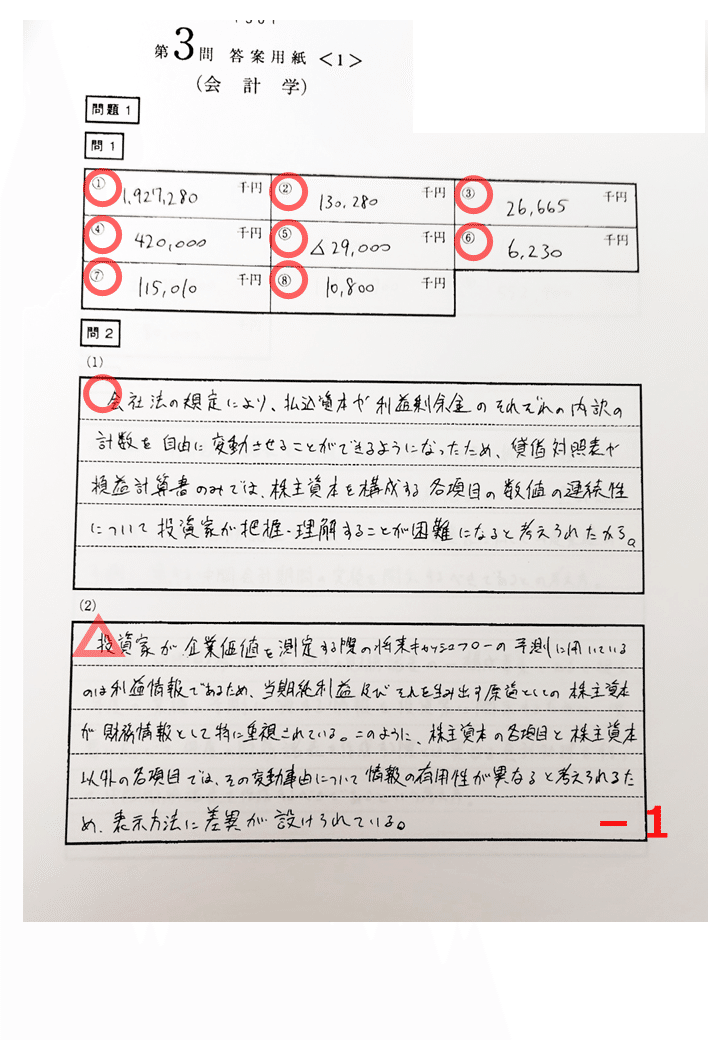 第3問 答案用紙 <1>
(会計学)
問題1
問1
① 1,927,280 千円 ② 130,280 千円 ③ 26,665 千円
④ 420,000 千円 ⑤ △29,000 千円 ⑥ 6,230 千円
⑦ 115,010 千円 ⑧ 10,800 千円
問2
(1)
会社法の規定により、払込資本や利益剰余金のそれぞれの内訳の
計数を自由に変動させることができるようになったため、貸借対照表や
損益計算書のみでは、株主資本を構成する各項目の数値の連続性
について投資家が把握・理解することが困難になると考えられたから。
(2)
投資家が企業価値を測定する際の将来キャッシュフローの予測に用いている
のは利益情報であるため、当期純利益及びそれを生み出す原資としての株主資本
が財務情報として特に重視されている。このように、株主資本の各項目と株主資本
以外の各項目では、その変動事由について情報の有用性が異なると考えられるた
め、表示方法に差異が設けられている。
-1